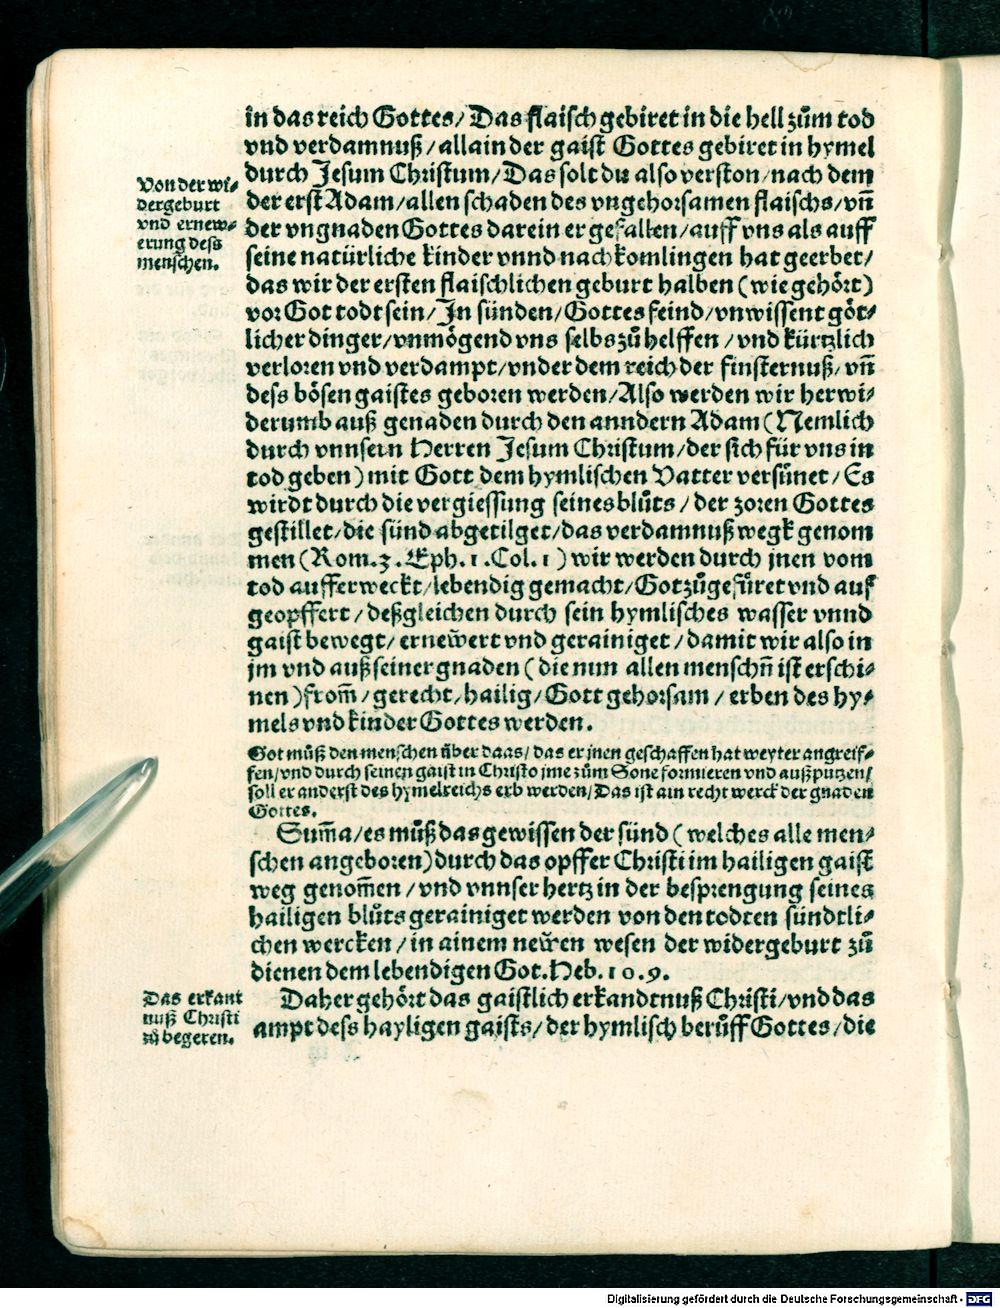 in das reich Gottes/ Das flaisch gebiret in die hell zům tod
vnd verdamnuß/allain der gaist Gottes gebiret in hymel
durch Jesum Christum/Das solt du also verston/nach dem
Von der wi-
dergeburt
vnd ernew-
erung dess
menschen.
der erst Adam/allen schaden des vngehorsamen flaischs/vn̄
der vngnaden Gottes darein er gefallen/auff vns als auff
seine natürliche kinder vnnd nachkomlingen hat geerbet/
das wir der ersten flaischlichen geburt halben (wie gehört)
vor Got todt sein/In sünden/Gottes feind/vnwissent göt-
licher dinger/vnmögend vns selbs zů helffen /vnd kürtzlich
verloren vnd verdampt/vnder dem reich der finsternuß/vn̄
dess bösen gaistes geboren werden/Also werden wir herwi-
derumb auß genaden durch den anndern Adam (Nemlich
durch vnnsern Herren Jesum Christum/der sich für vns in
tod geben) mit Gott dem hymlischen Vatter versünet/Es
wirdt durch die vergiessung seines blůts/der zoren Gottes
gestillet/die sünd abgetilget/das verdamnuß wegk genom
men (Rom.3.Eph.1.Col.1) wir werden durch jnen vom
tod aufferweckt/lebendig gemacht/Got zůgefüret vnd auf
geopffert/deßgleichen durch sein hymlisches wasser vnnd
gaist bewegt/ernewert vnd gerainiget/damit wir also in
jm vnd auß seiner gnaden (die nun allen menschn̄ ist erschi-
nen)from̄/gerecht/hailig/Gott gehorsam/erben des hy-
mels vnd kinder Gottes werden.
Got můß den menschen über daas/das er jnen geschaffen hat weyter angreif-
fen/vnd durch seinen gaist in Christo jme zům Sone formieren vnd außputzen/
soll er anderst des hymelreichs erb werden/Das ist ain recht werck der gnaden
Gottes.
Sum̄a/es můß das gewissen der sünd (welches alle men-
schen angeboren)durch das opffer Christi im hailigen gaist
weg genom̄en/vnd vnnser hertz in der besprengung seines
hailigen blůts gerainiget werden von den todten sündtli-
chen wercken/in ainem newen wesen der widergeburt zů
dienen dem lebendigen Got.Heb.10.9.
Das erkant
nuß Christi
zů begeren.
Daher gehört das gaistlich erkandtnuß Christi/vnd das
ampt dess hayligen gaists/der hymlisch berůff Gottes/die
Digitalisierung gefördert durch die Deutsche Forschungsgemeinschaft - DFG